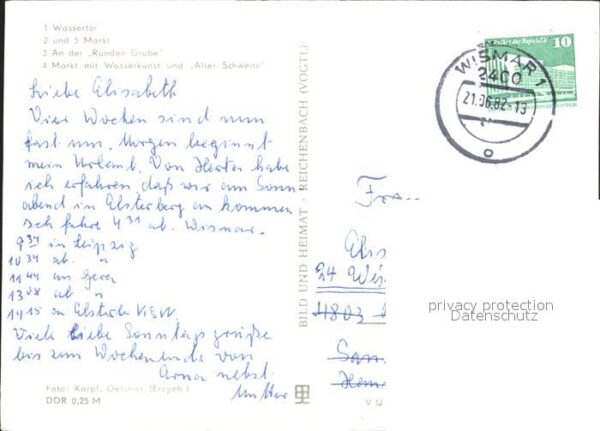 1 Wassertor
2 und 5 Markt
3 An der „Runden Grube"
4 Markt mit Wasserkunst und „Alter Schwede"
Liebe Elisabeth
Vier Wochen sind nun
fast um. Morgen beginnt
mein Urlaub. Von Herta habe
ich erfahren, daß wir am Sonn
abend in Elsterberg ankommen
Ich fahre 4 31 ab. Wismar.
9 34 in Leipzig
10 34 ab. "
11 44 an Gera
13 08 ab "
14 15 an Elsterb
Viele liebe Sonntagsgrüße
bis zum Wochenende von
Erna nebst
Mutter
Foto: Karpf, Oelsnitz (Erzgeb.)
DDR 0,25 M
BILD UND HEIMAT · REICHENBACH (VOGTL)
WISMAR 1
2400
21.06.82-13
Palast der Republik
10
Fr
Elis
24 Wis
4803
privacy protection
Datenschutz